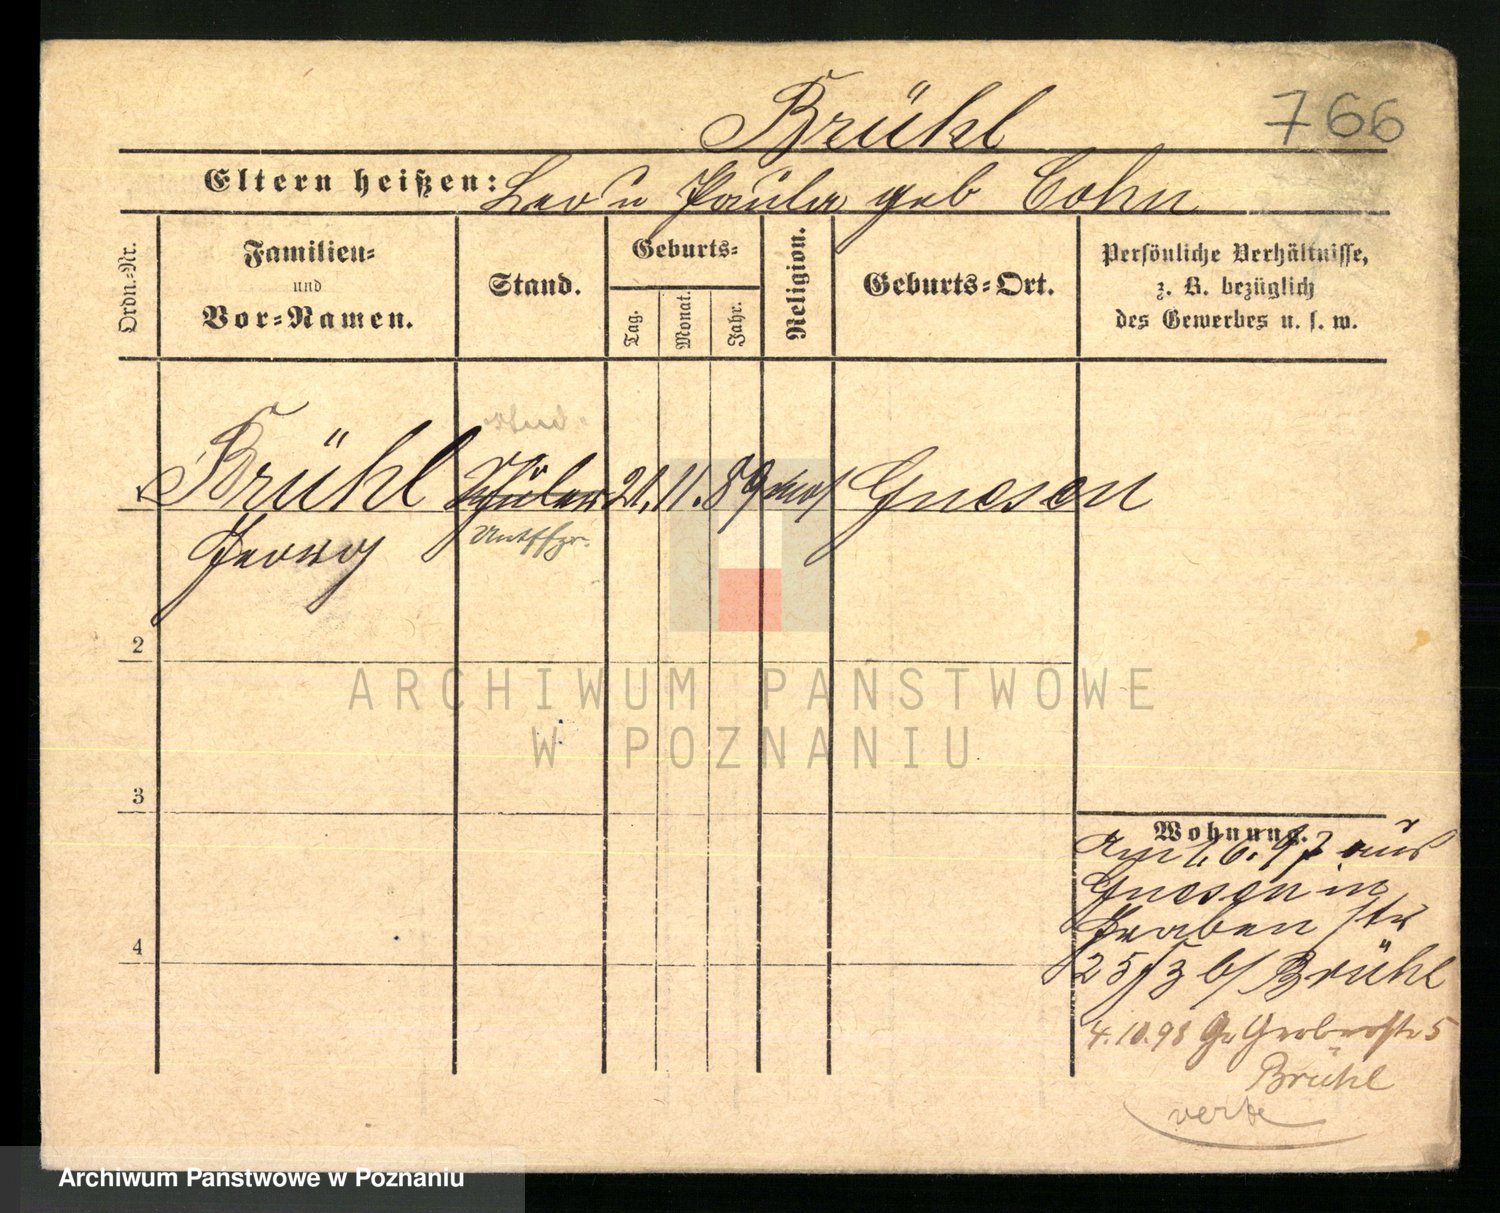 Brühl
766
Eltern heißen: Leo u Paula geb Cohn
Ordn.-Nr.
Familien-
und
Vor-Namen.
Stand.
Geburts-
Tag.
Monat.
Jahr.
Religion.
Geburts-Ort.
Persönliche Verhältnisse,
z. B. bezüglich
des Gewerbes u. s. w.
stud.
Brühl Schüler 21. 11. 89 mos Gnesen
Georg
2
3
4
ARCHIWUM PAŃSTWOWE
W POZNANIU
Wohnung.
Am 1.6.97 aus
Gnesen in
Graben str
25/3 b/ Brühl
4.10.98 Gr Gerberstr 5
Brühl
verte
Archiwum Państwowe w Poznaniu